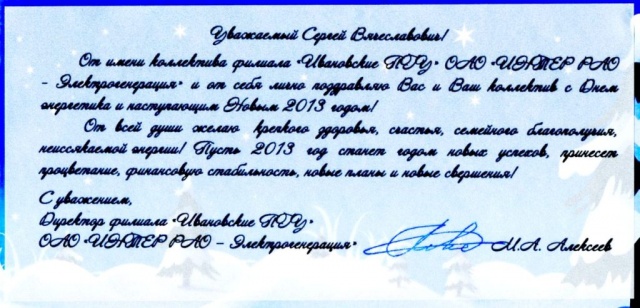 Уважаемый Сергей Вячеславович!
От имени коллектива филиала «Ивановские ПГУ» ОАО «ИНТЕР РАО
- Электрогенерация» и от себя лично поздравляю Вас и Ваш коллектив с Днем
энергетика и наступающим Новым 2013 годом!
От всей души желаю крепкого здоровья, счастья, семейного благополучия,
неиссякаемой энергии! Пусть 2013 год станет годом новых успехов, принесет
процветание, финансовую стабильность, новые планы и новые свершения!
С уважением,
Директор филиала «Ивановские ПГУ»
ОАО «ИНТЕР РАО – Электрогенерация» М.А. Алексеев